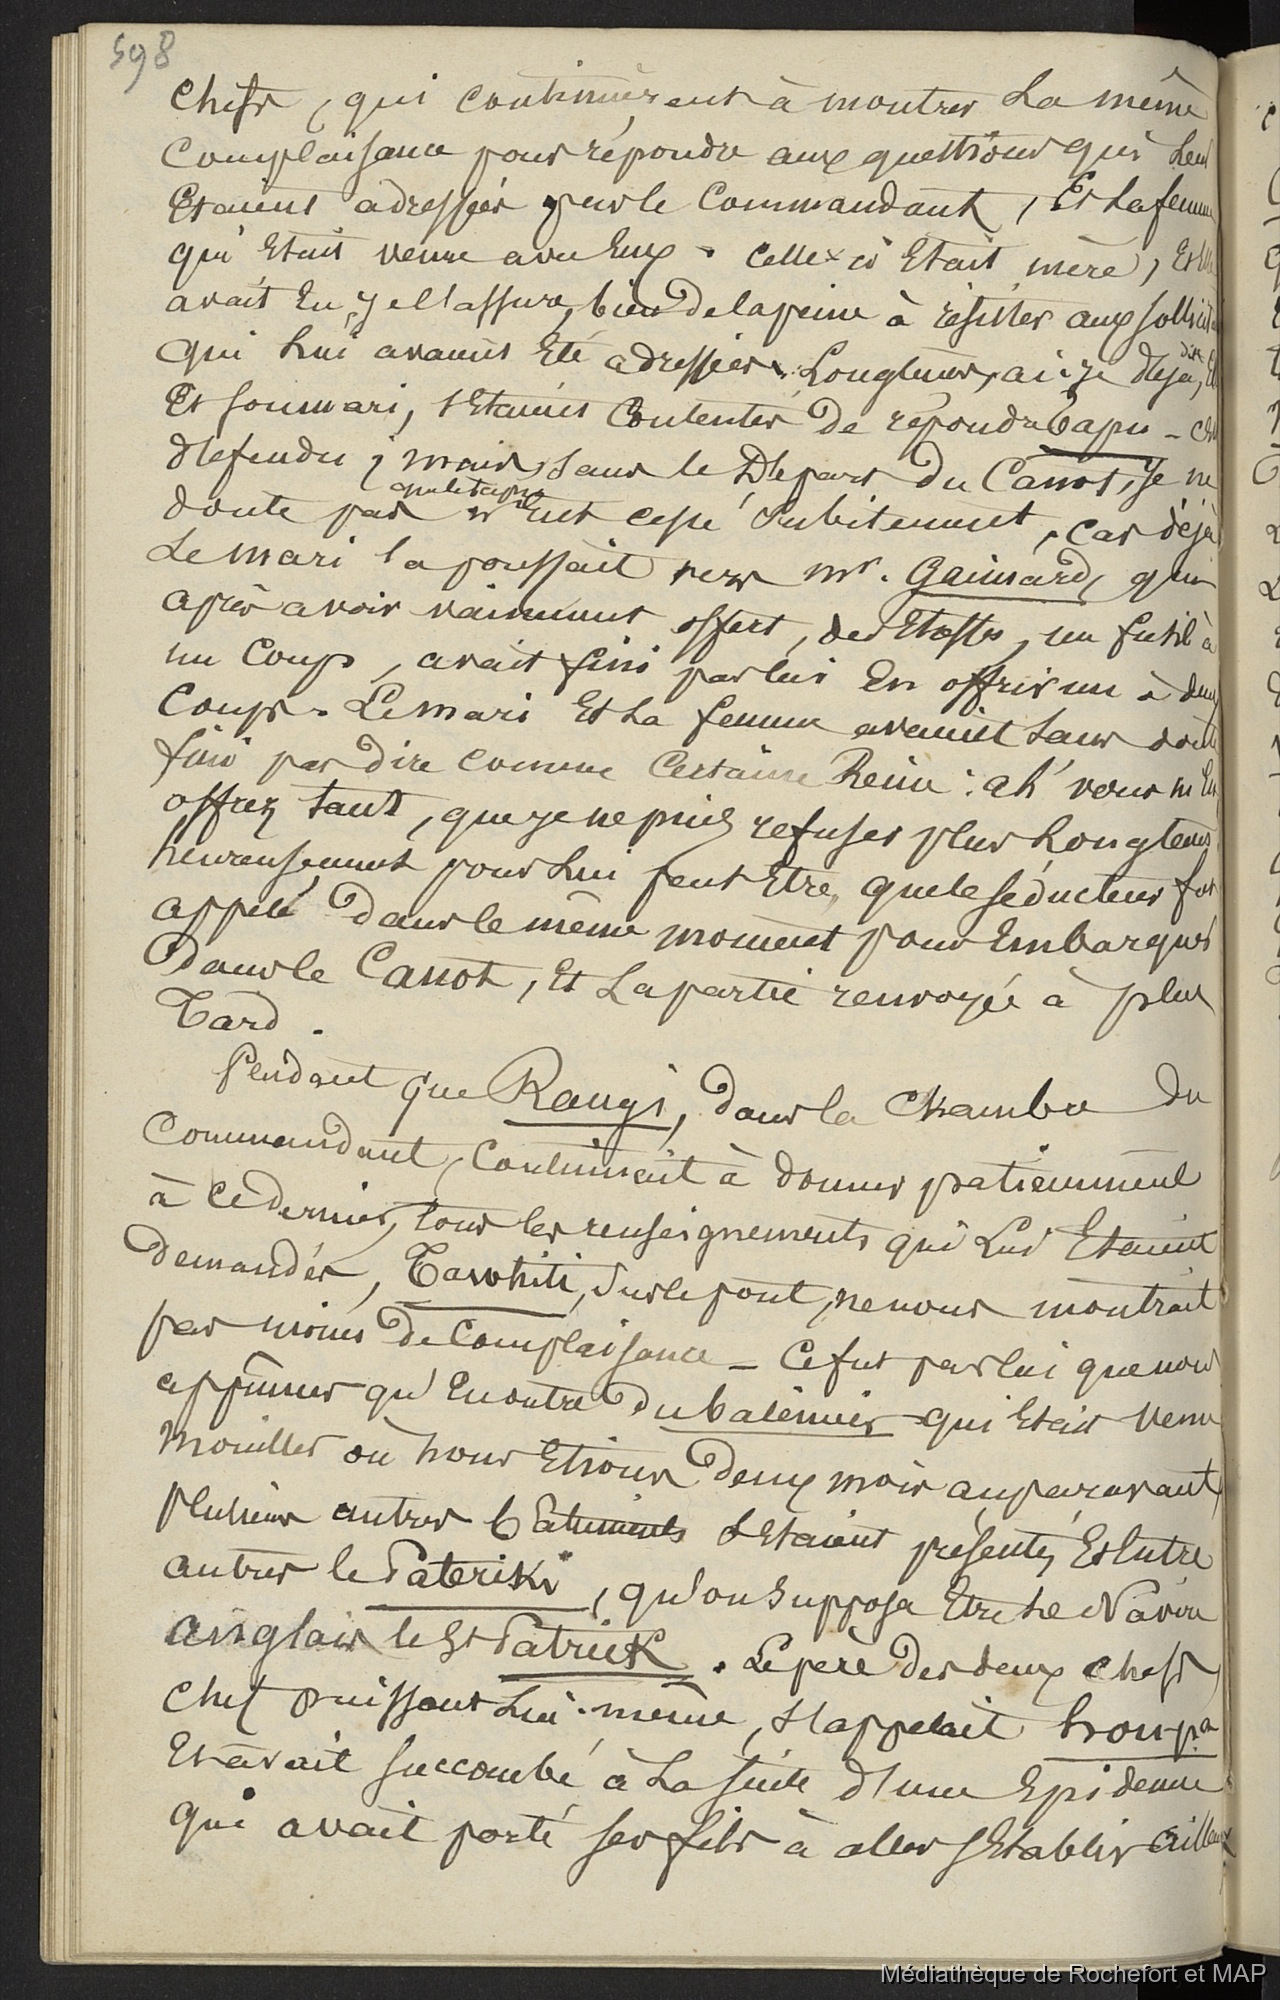 598
chefs, qui continuèrent à montrer La même
Complaisance pour répondre aux questions qui Leur
Etaient adressées par le Commandant, Et La femme
qui Etait venue avec Eux. Celle-ci Etait mère, Et
avait Eu, je l'assure, bien De la peine à résister aux
qui Lui avaient Eté adressées. Longtems, ai-je dit Déja,
Et son mari, s'Etaient Contentés De répondre Tapu -
Défendu ; mais, sans le Départ du Canot, Je ne
doute pas que le tapu n'Eut cessé subitement, car déjà
Le mari la poussait vers Mr. Gaimard, qui
après avoir vainement offert, des Etoffes, un fusil à
un Coup, avait fini par lui En offrir un à deux
Coups. Le mari Et La femme avaient sans doute
fini par Dire comme Certaine Reine : ah! vous m'En
offrez tant, que je ne puis refuser plus Longtems
heureusement pour Lui peut Etre, que le séducteur fut
appelé Dans le même moment pour Embarquer
Dans le Canot, Et La partie renvoyée à plus
Tard.
Pendant que Rangi, Dans la Chambre Du
Commandant, Continuait à Donner patiemment
à ce Dernier, tous les renseignements qui Lui Etaient
Demandés, Tawhiti, sur le pont, ne nous montrait
pas moins De Complaisance - Ce fut par lui que nous
apprîmes qu'En outre Du baleinier qui Etait venu
mouiller où nous Etions Deux mois auparavant,
plusieurs autres bâtiments s'Etaient présentés, Et Entre
autres le Pateriki, qu'on supposa Etre Le Navire
anglais le St Patrick. Le père Des deux chefs,
Chef puissant Lui-même, s'appelait houpa
Et avait succombé à La suite d'une Epidemie
qui avait porté ses fils à aller s'Etablir ailleurs
Médiathèque de Rochefort et MAP